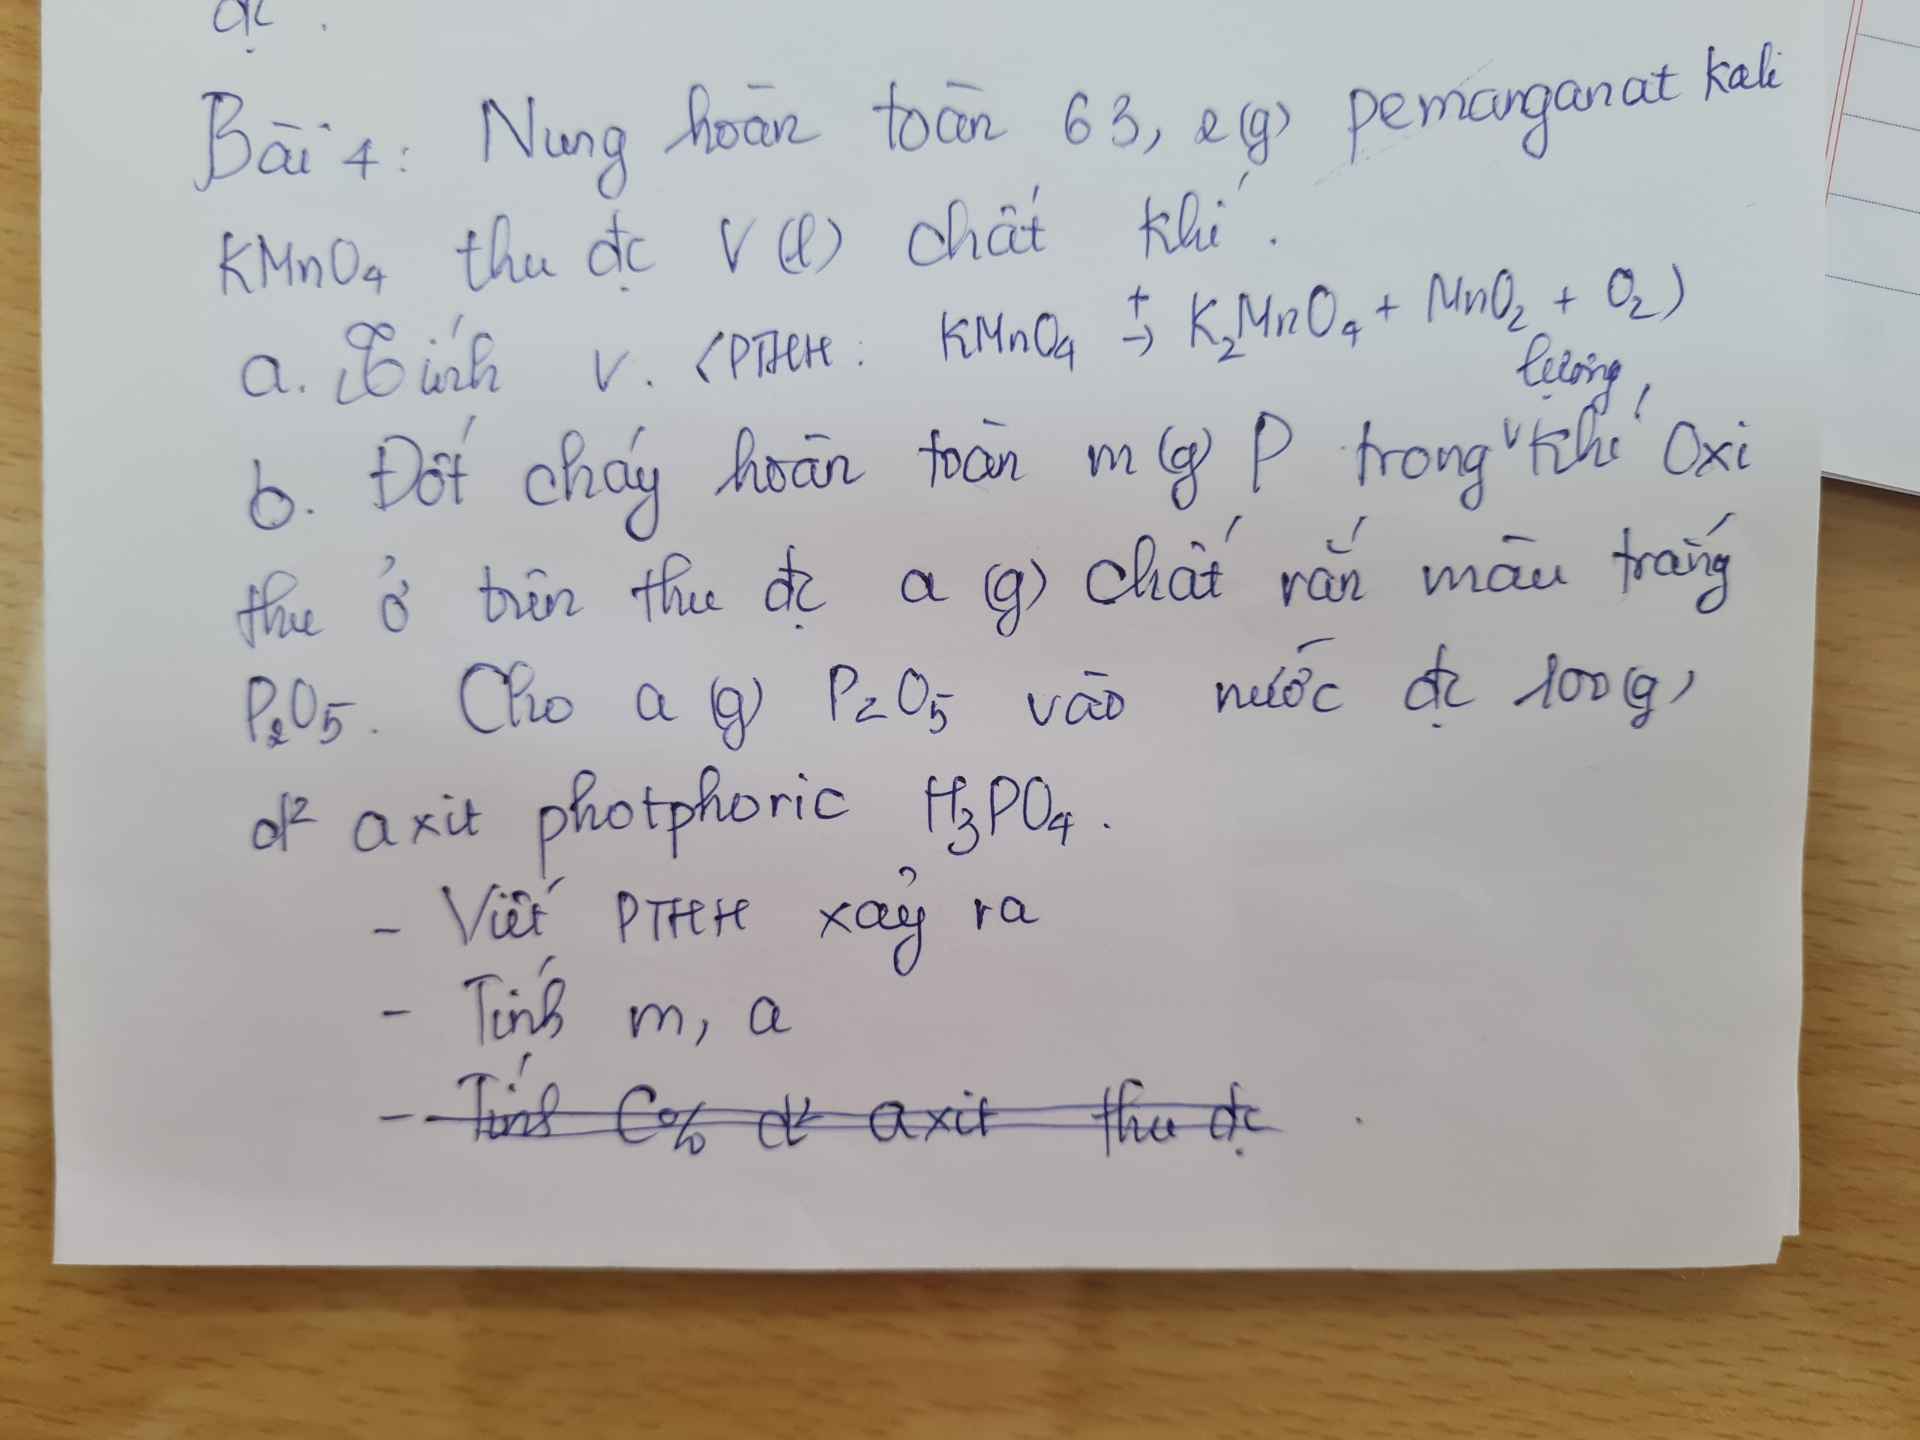 đc.
Bài 4: Nung hoàn toàn 63,2(g) pemanganat kali
KMnO4 thu đc V (l) chất khí.
a. Tính V. (PTHH: KMnO4 t→ K2MnO4 + MnO2 + O2)
lượng
b. Đốt cháy hoàn toàn m (g) P trong v khí Oxi
thu ở trên thu đc a (g) chất rắn màu trắng
P2O5. Cho a (g) P2O5 vào nước đc 100(g)
d² axit photphoric H3PO4.
- Viết PTHH xảy ra
- Tính m, a
- Tính C% d² axit thu đc.